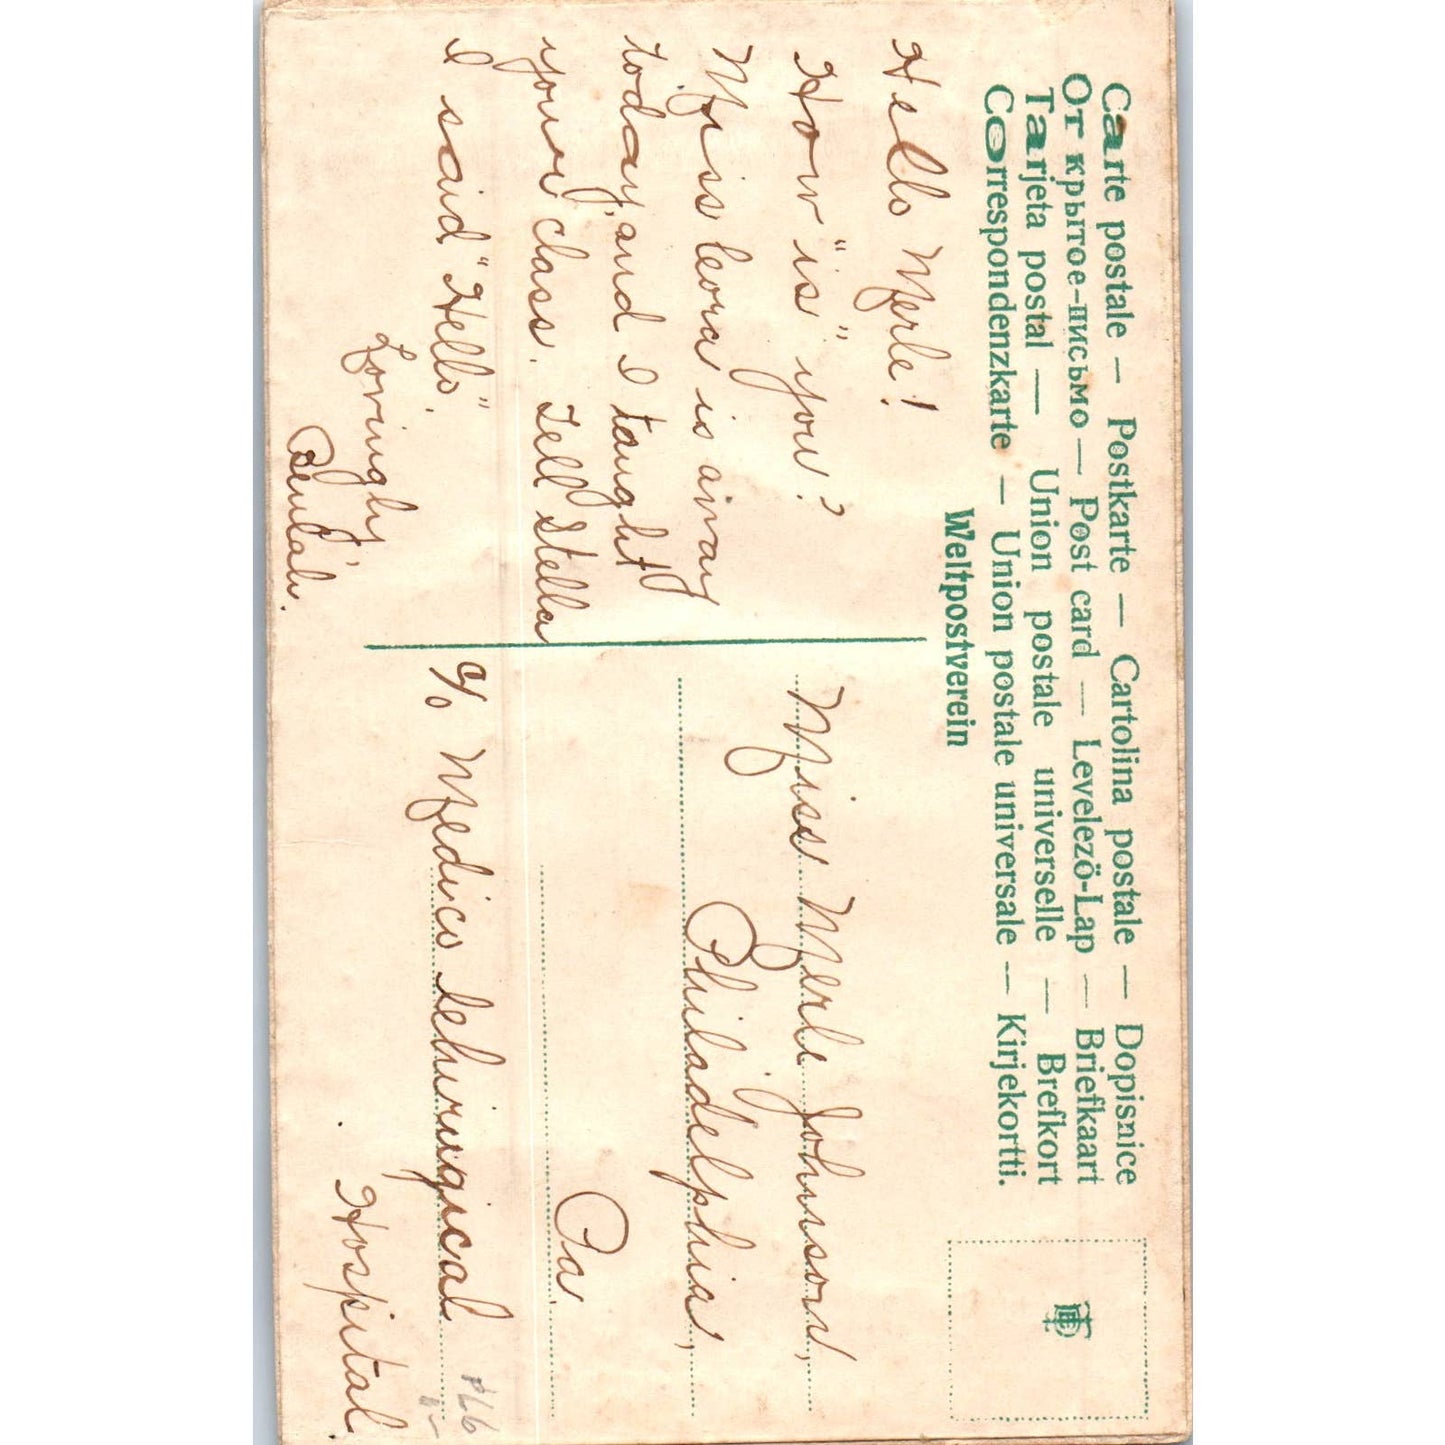 Carte postale — Postkarte — Cartolina postale — Dopisnice
От крытое-письмо — Post card — Levelezö-Lap — Briefkaart
Tarjeta postal — Union postale universelle — Brefkort
Correspondenzkarte — Union postale universale — Kirjekortti.
Weltpostverein
Hello Merle!
How "is" you?
Miss Leora is away
today, and I taught
your class. Tell Stella
I said "Hello."
Lovingly,
Beulah.
Miss Merle Johnson,
Philadelphia,
Pa.
c/o Medico Schurugical
Hospital.